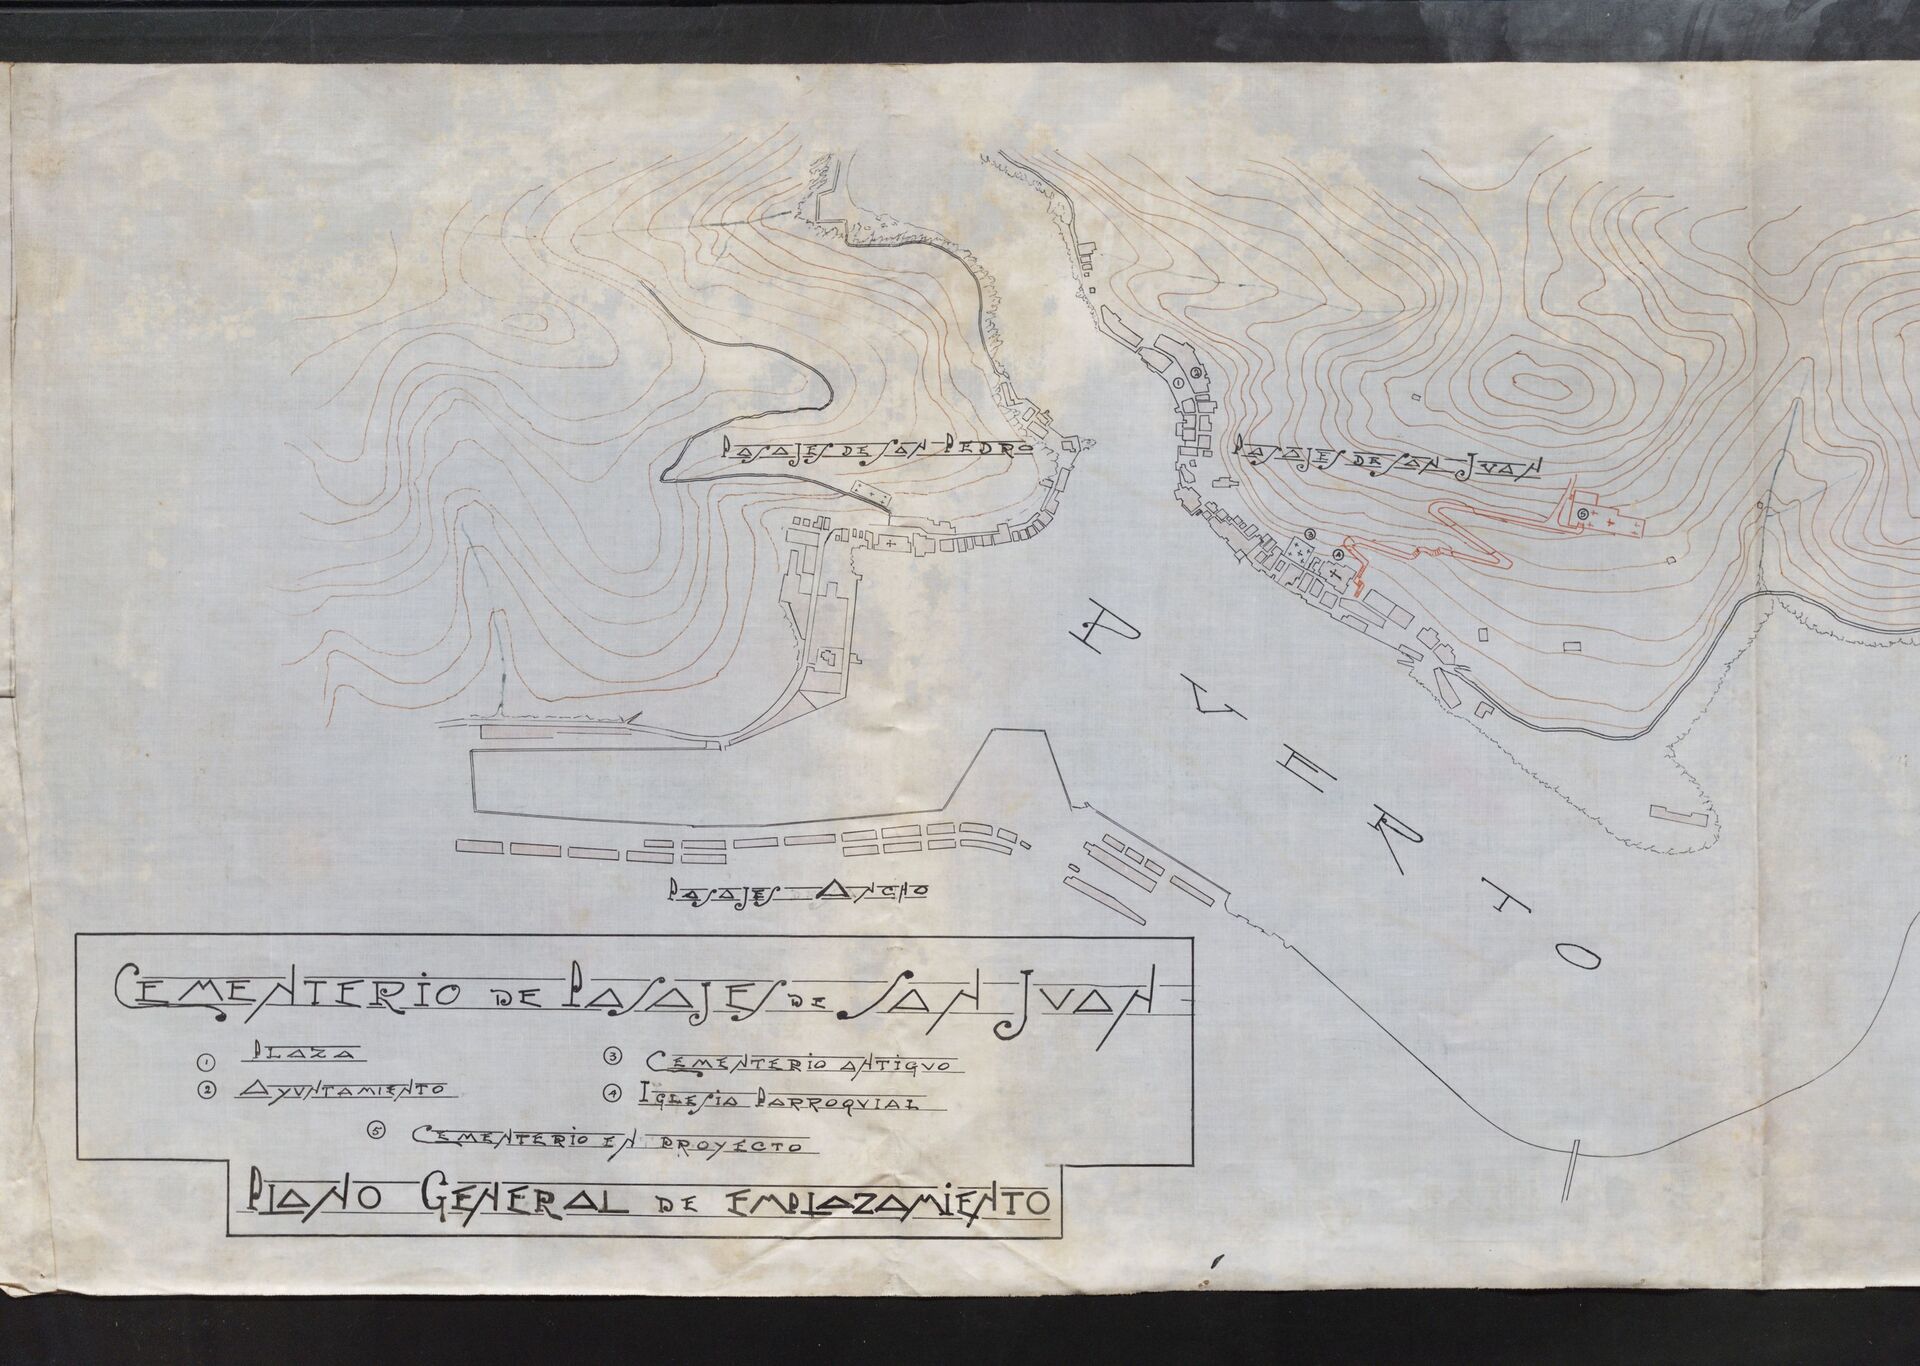 2
1
PASAJES DE SAN PEDRO
PASAJES DE SAN JUAN
5
3
4
PUERTO
PASAJES ANCHO
CEMENTERIO DE PASAJES DE SAN JUAN
1 PLAZA
3 CEMENTERIO ANTIGUO
2 AYUNTAMIENTO
4 IGLESIA PARROQUIAL
5 CEMENTERIO EN PROYECTO
PLANO GENERAL DE EMPLAZAMIENTO